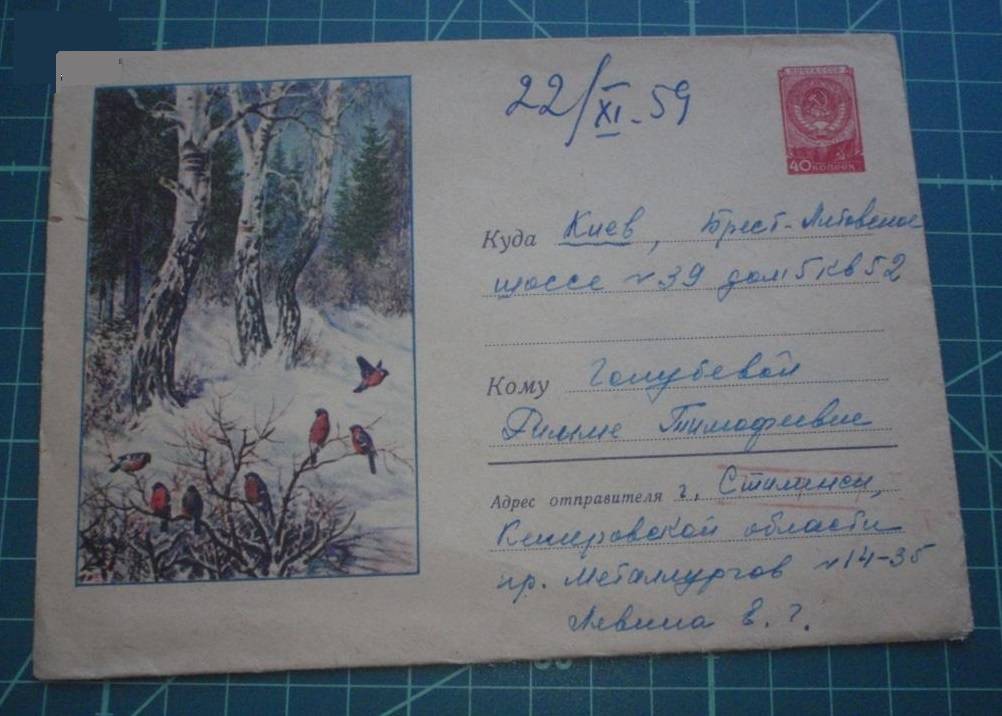 22/XI-59
ПОЧТА СССР
40 КОПЕЕК
Куда Киев, Брест-Литовское
шоссе №39 дом 5 кв 52
Кому Голубевой
Римме Тимофеевне
Адрес отправителя г. Сталинск,
Кемеровской области
пр. Металлургов №14-35
Левина Е. Г.